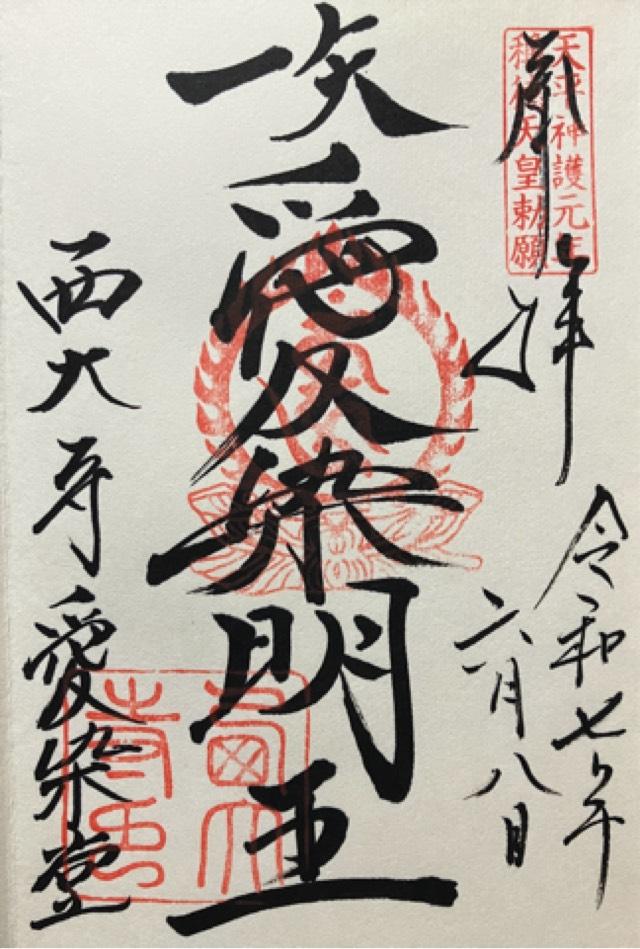 天平神護元年
称徳天皇勅願
拝
令和七年
六月八日
一矢愛染明王
西大寺愛染堂
西大
寺印